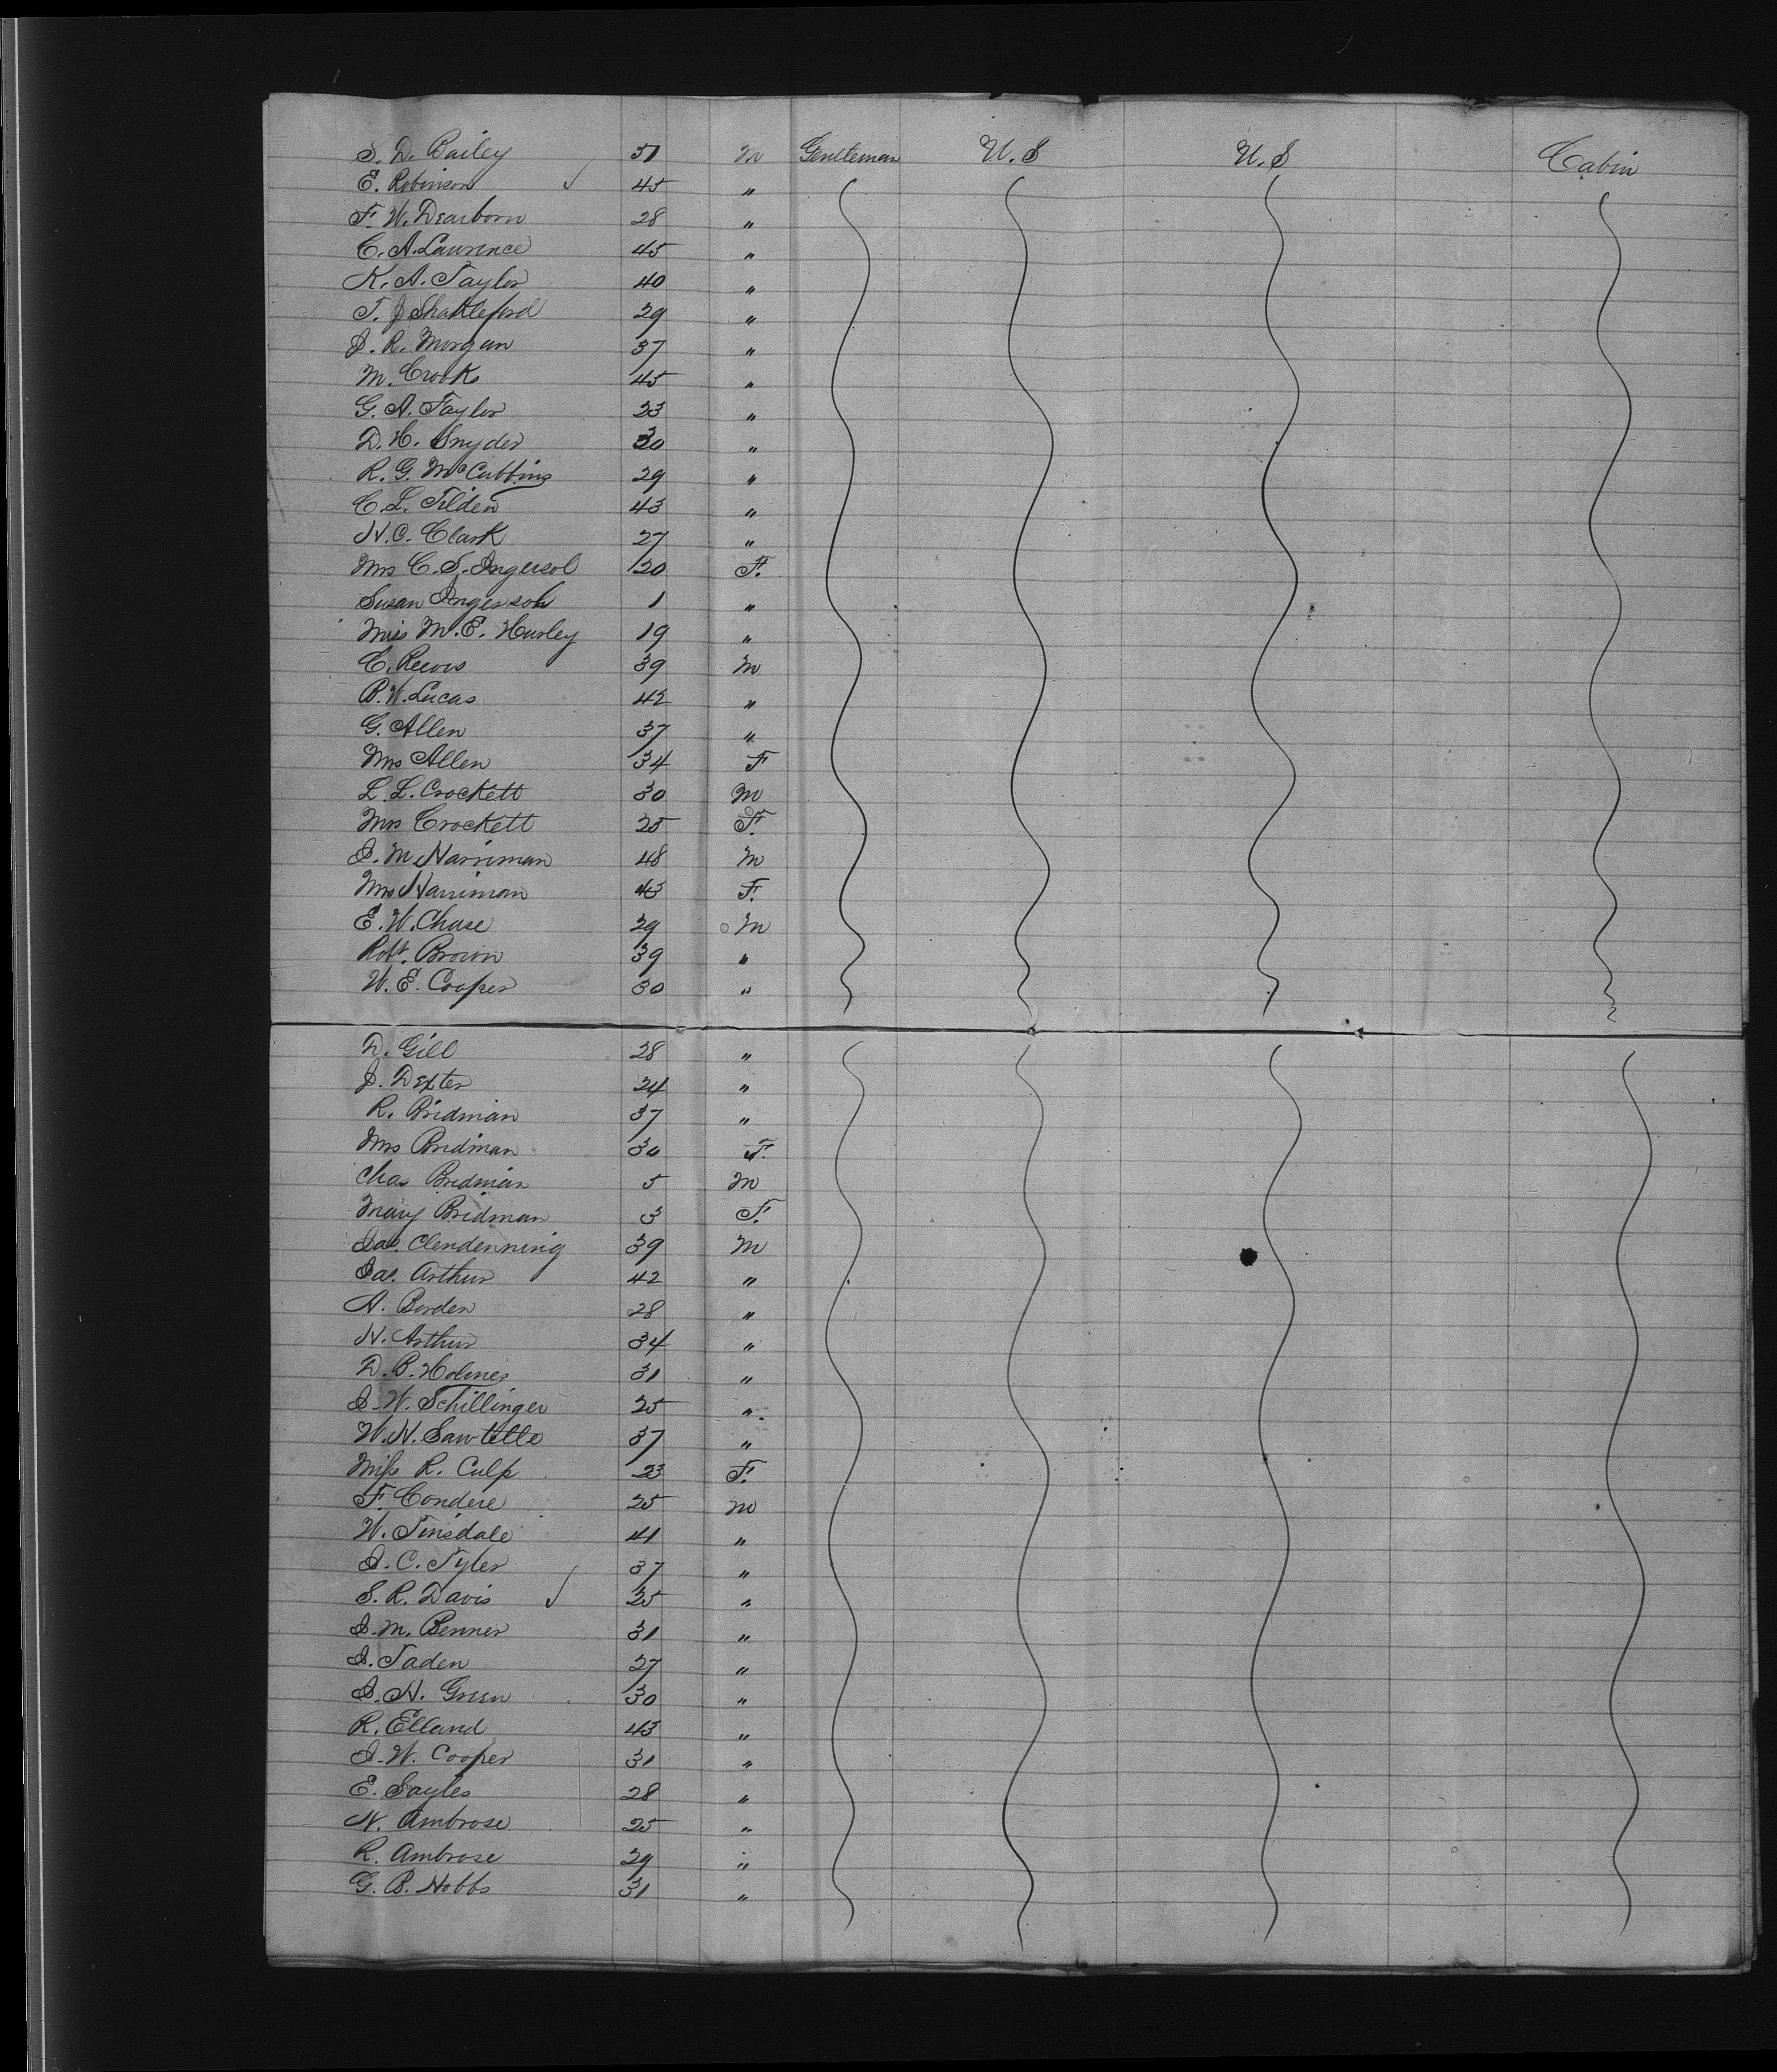 S. D. Bailey 31 M Gentleman U.S U.S Cabin
E. Robinson ✓ 45 "
F. W. Dearborn 28 "
C. A. Lawrence 45 "
K. A. Taylor 40 "
T. J Shakleford 29 "
J. R. Morgan 37 "
M. Crooks 45 "
G. A. Taylor 23 "
D. H. Snyder 30 "
R. G. McCubbins 29 "
C. L. Tilden 43 "
N. C. Clark 27 "
Mrs C. S. Ingersol 20 F.
Susan Ingersoll 1 "
Miss M. E. Hurley 19 "
C. Reeves 39 M
B. W. Lucas 42 "
G. Allen 37 "
Mrs Allen 34 F
L. L. Crockett 30 M
Mrs Crockett 25 F.
J. M Harriman 48 M
Mrs Harriman 43 F.
E. W. Chase 29 M
Robt. Brown 39 "
W. E. Cooper 30 "
D. Gill 28 "
J. Dexter 24 "
R. Bridman 37 "
Mrs Bridman 30 F.
Chas Bridman 5 M
Mary Bridman 3 F.
Jas. Clendenning 39 M
Jas. Arthur 42 "
A. Borden 28 "
N. Arthur 34 "
D. B. Holmes 31 "
J. W. Schillinger 25 "
W. H. Sawtelle 37 "
Miss R. Culp 23 F.
F. Condere 25 M
W. Tinsdale 41 "
J. C. Tyler 37 "
S. R. Davis ✓ 25 "
J. M. Benner 31 "
J. Taden 27 "
J. H. Green 30 "
R. Elland 43 "
J. W. Cooper 31 "
E. Sayles 28 "
N. Ambrose 25 "
R. Ambrose 29 "
G. B. Hobbs 31 "